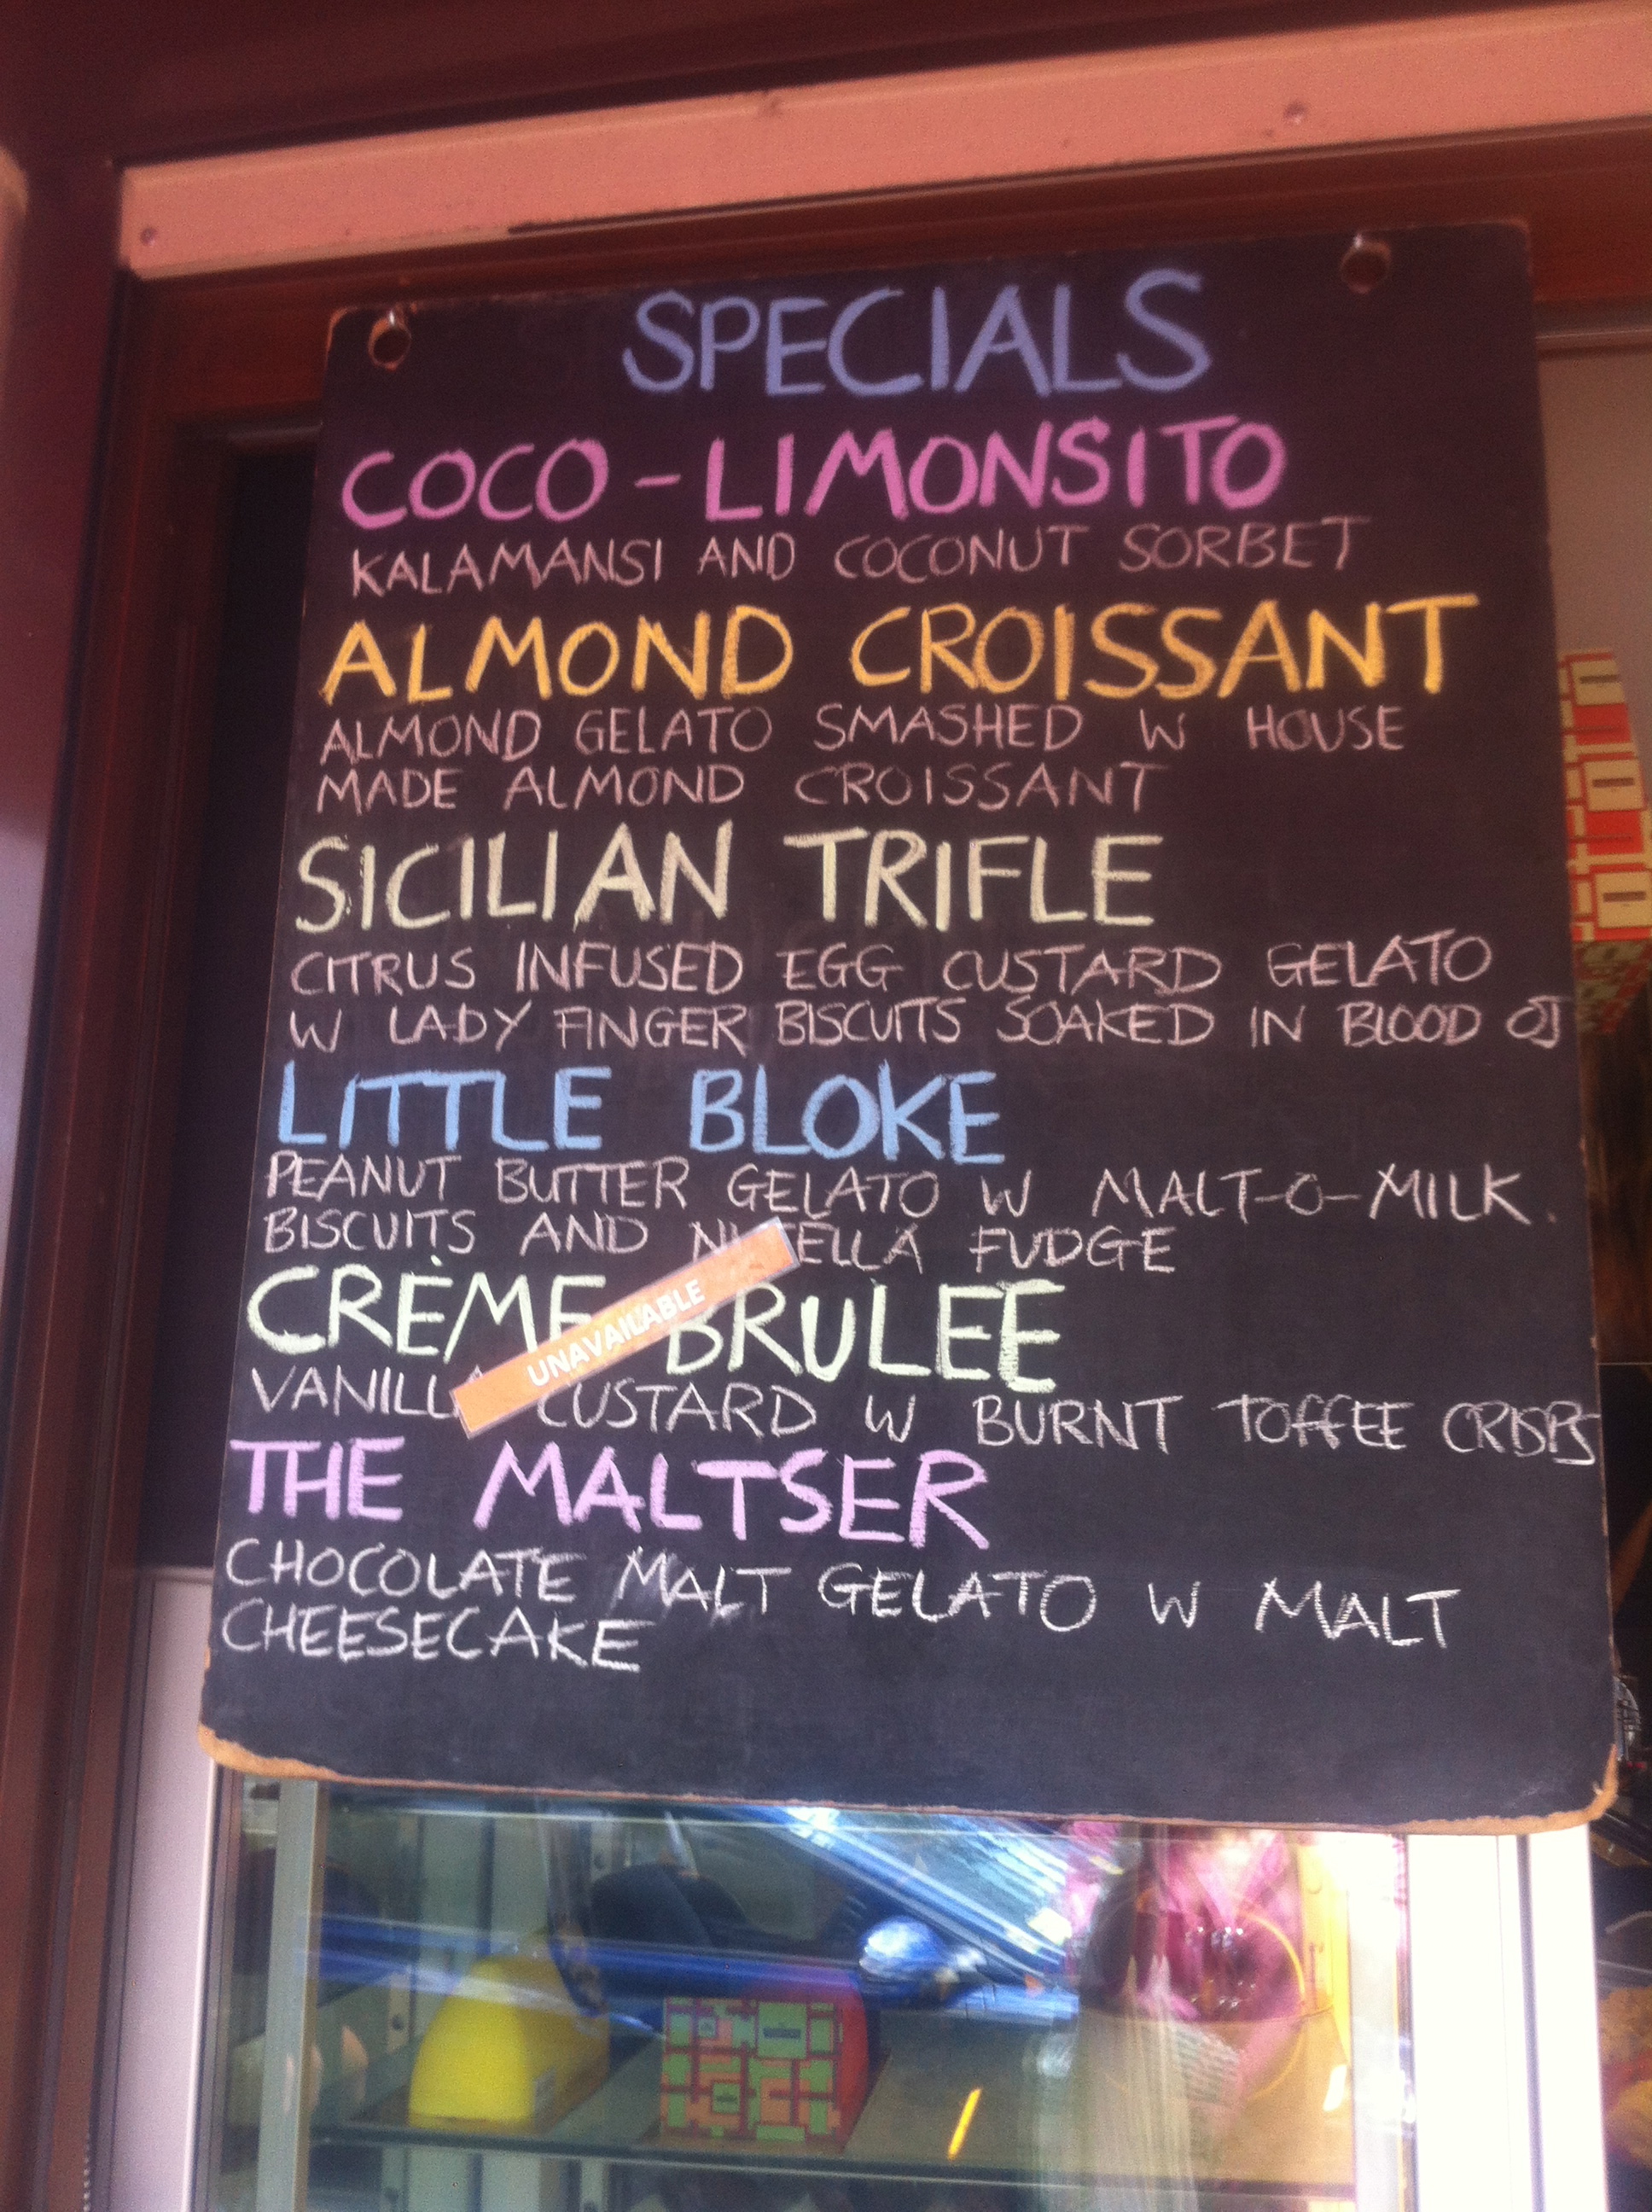 SPECIALS
COCO-LIMONSITO
KALAMANSI AND COCONUT SORBET
ALMOND CROISSANT
ALMOND GELATO SMASHED W HOUSE
MADE ALMOND CROISSANT
SICILIAN TRIFLE
CITRUS INFUSED EGG CUSTARD GELATO
W LADY FINGER BISCUITS SOAKED IN BLOOD OJ
LITTLE BLOKE
PEANUT BUTTER GELATO W MALT-O-MILK
BISCUITS AND NUTELLA FUDGE
CRÈME BRULEE
UNAVAILABLE
VANILLA CUSTARD W BURNT TOFFEE CRISPS
THE MALTSER
CHOCOLATE MALT GELATO W MALT
CHEESECAKE